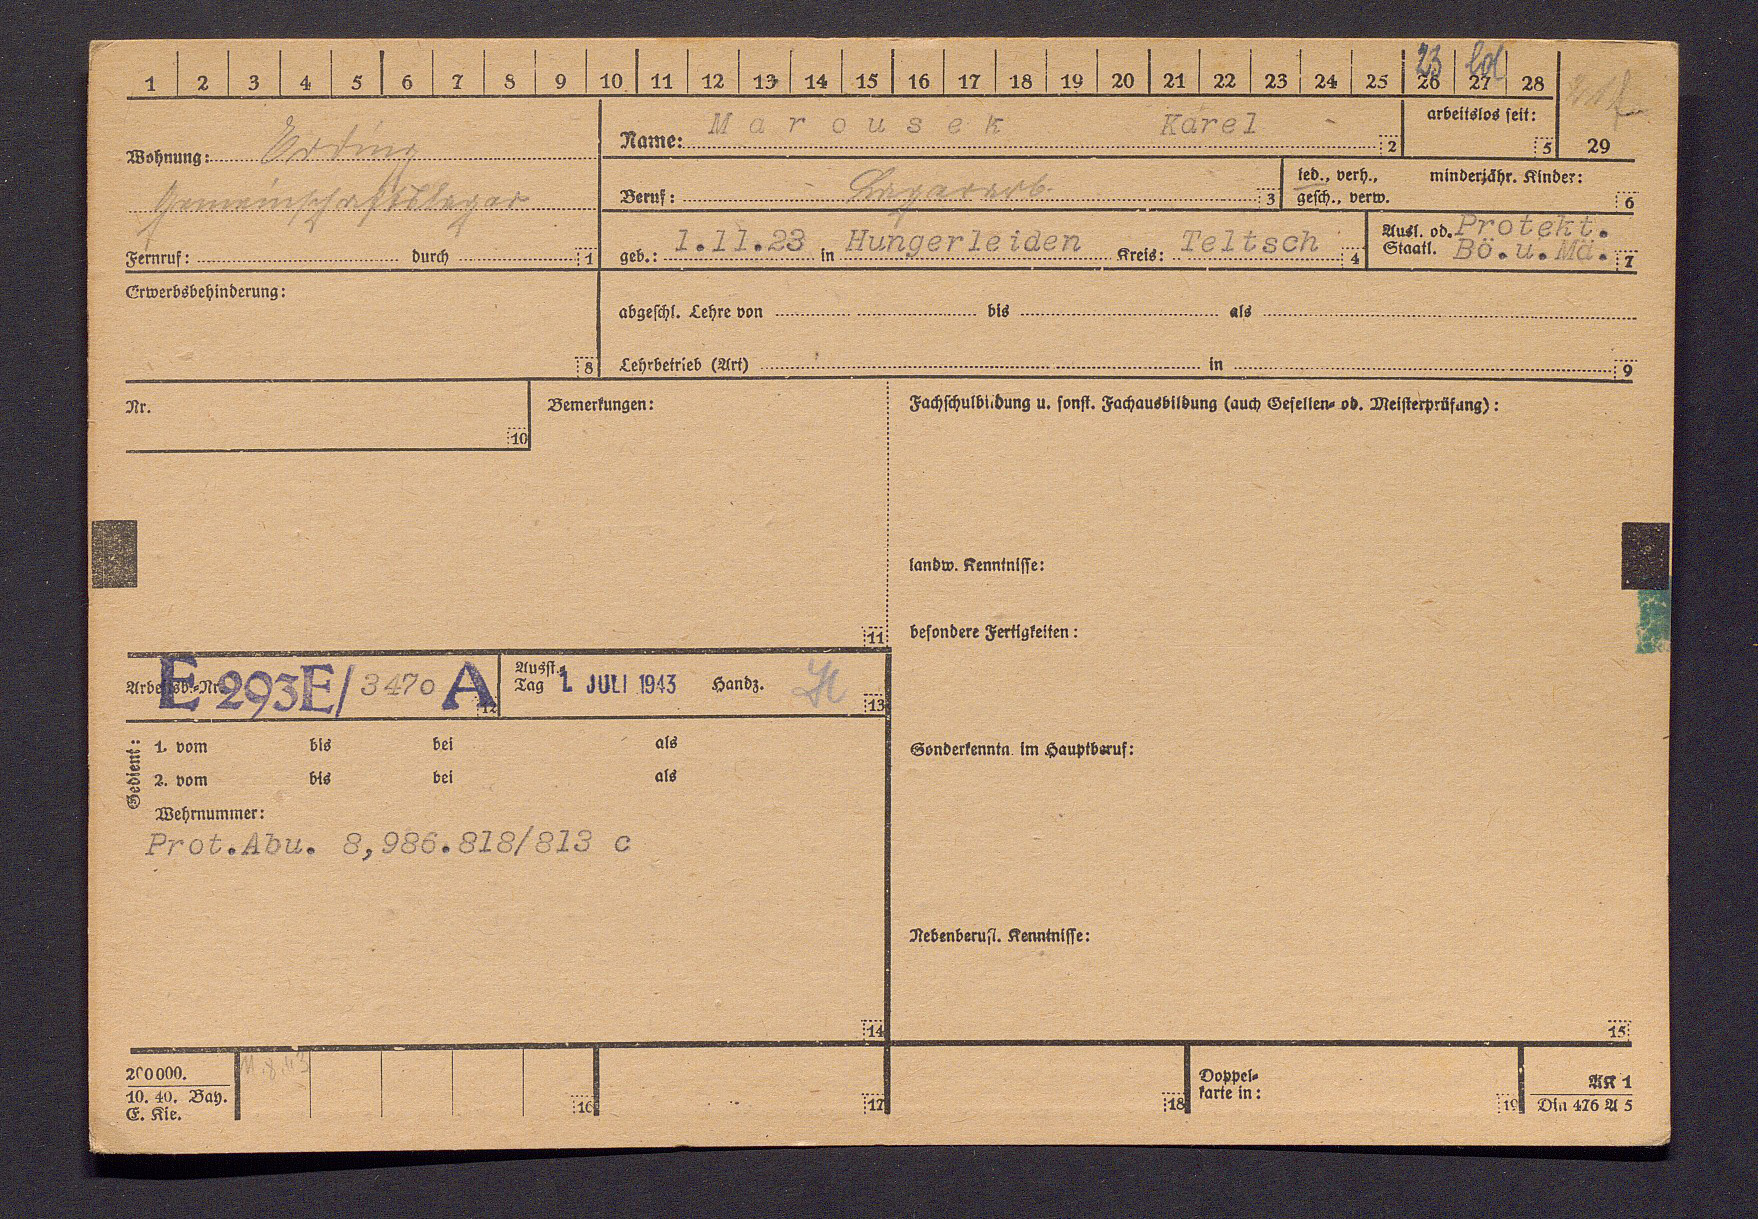 1 2 3 4 5 6 7 8 9 10 11 12 13 14 15 16 17 18 19 20 21 22 23 24 25 26 27 28
23 led
29
Wohnung: Erding
Gemeinschaftslager
Fernruf: durch 1
Name: Marousek Karel 2
arbeitslos seit: 5
Beruf: Lagerarb. 3
led., verh., minderjähr. Kinder:
gesch., verw. 6
geb.: 1.11.23 in Hungerleiden Kreis: Teltsch 4
Ausl. od. Protekt.
Staatl. Bö.u.Mä. 7
Erwerbsbehinderung:
8
abgeschl. Lehre von bis als
Lehrbetrieb (Art) in 9
Nr.
10
Bemerkungen:
11
Fachschulbildung u. sonst. Fachausbildung (auch Gesellen- od. Meisterprüfung):
landw. Kenntnisse:
besondere Fertigkeiten:
Arbeitsb.-Nr. E 293E/3470 A 12
Ausst.-
Tag 1. JULI 1943 Handz. 13
Gedient:
1. vom bis bei als
2. vom bis bei als
Wehrnummer:
Prot.Abu. 8,986.818/813 c
14
Sonderkenntn. im Hauptberuf:
Nebenberufl. Kenntnisse:
15
200000.
10. 40. Bay.
E. Kie.
11.8.43
16
17
18
Doppel-
karte in:
19
AK 1
Din 476 A 5